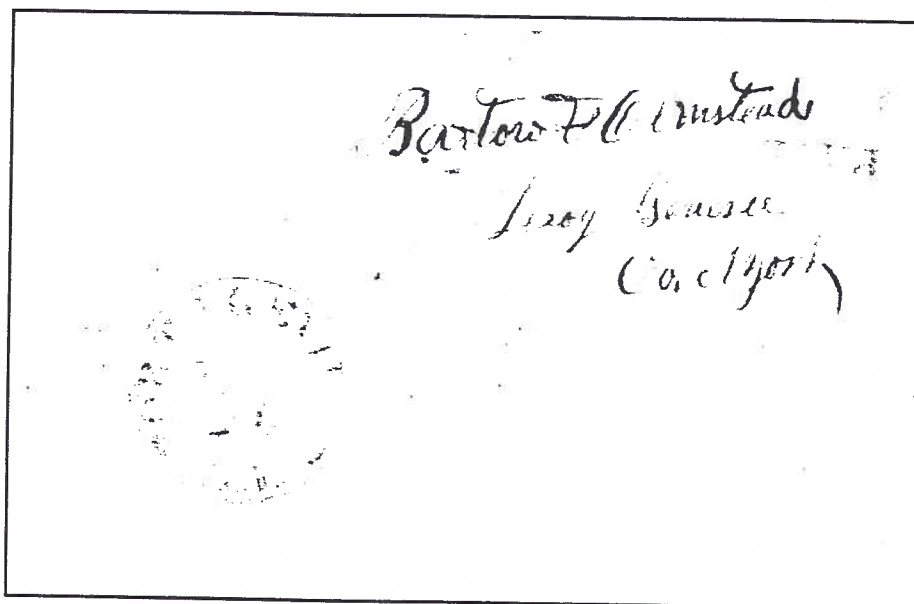 Barton F Olmstead
Leroy Genesee
Co. N York